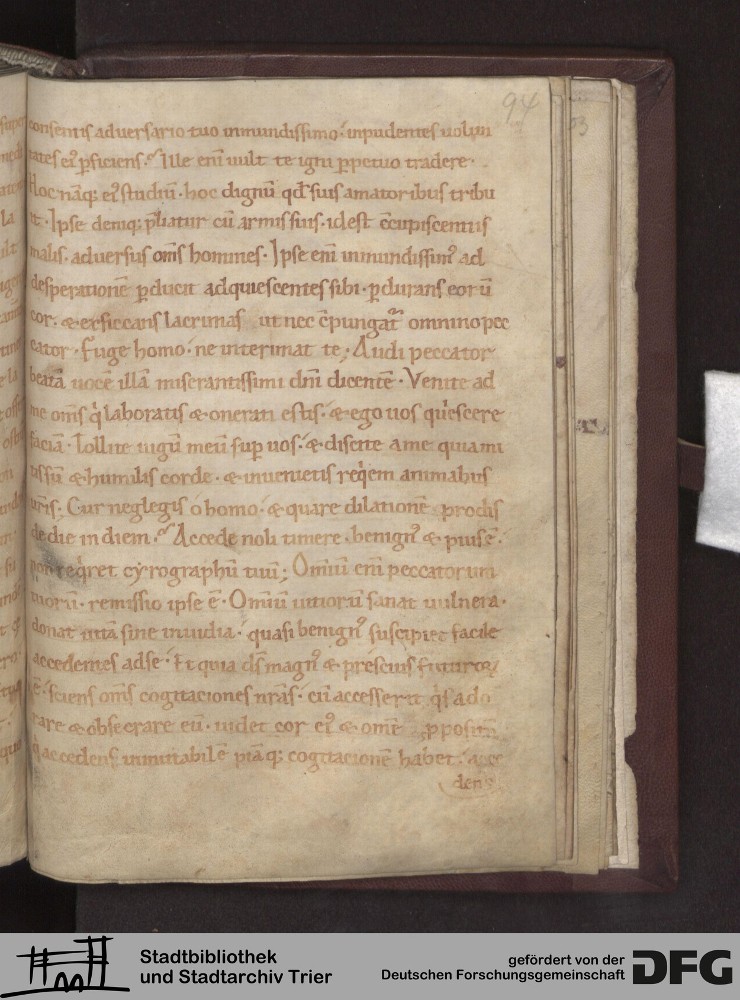 94
consentis adversario tuo inmundissimo· inpudentes uolun
tates ei᾽ ꝑficiens. Ille eni᷒ uult te igni ꝑpetuo tradere·
Hoc nāq; ei᾽ studiū· hoc dignū qđ suis amatoribus tribu
it· Ipse deniq; p̄liatur cū armis suis· idest c̄cupiscentiis
malis· adversus om̄s homines· Ipse eni᷒ inmundissim᾽ ad
desperationē ꝑducit adquiescentes sibi· ꝑdurans eorū
cor· & exsiccans lacrimas ut nec c̄pungat᷑ omnino pec
cator· Fuge homo· ne interimat te; Audi peccator
beatā uocē illā miserantissimi dn̄i dicentē· Venite ad
me om̄s q̓ laboratis & onerati estis· & ego uos quiescere
faciā· Tollite iugū meū suꝑ uos· & discite a me quia mi
tis sū & humilis corde· & inuenietis reqͥem animabus
ur̄is; Cur neglegis o homo· & quare dilationē prodis
de die in diem. Accede noli timere· benign᾽ & pius ē·
non reqͥret cyrographū tuū; Om̄iū eni᷒ peccatorum
tuorū· remissio ipse ē· Om̄iū uitiorū sanat uulnera·
donat uitā sine inuidia· quasi benign᾽ suscipiet facile
accedentes ad se· Et quia dś magn᾽ & prescius futuroꝝ
ē· sciens om̄s cogitaciones nr̄as· cū accesserit q̓s ado
rare & obsecrare eū· uidet cor ei᾽ & omē ꝓpositū
q̓ accedens inmutabilē piāq; cogitacionē habet· acce
dens
03
Stadtbibliothek
und Stadtarchiv Trier
gefördert von der
Deutschen Forschungsgemeinschaft
DFG